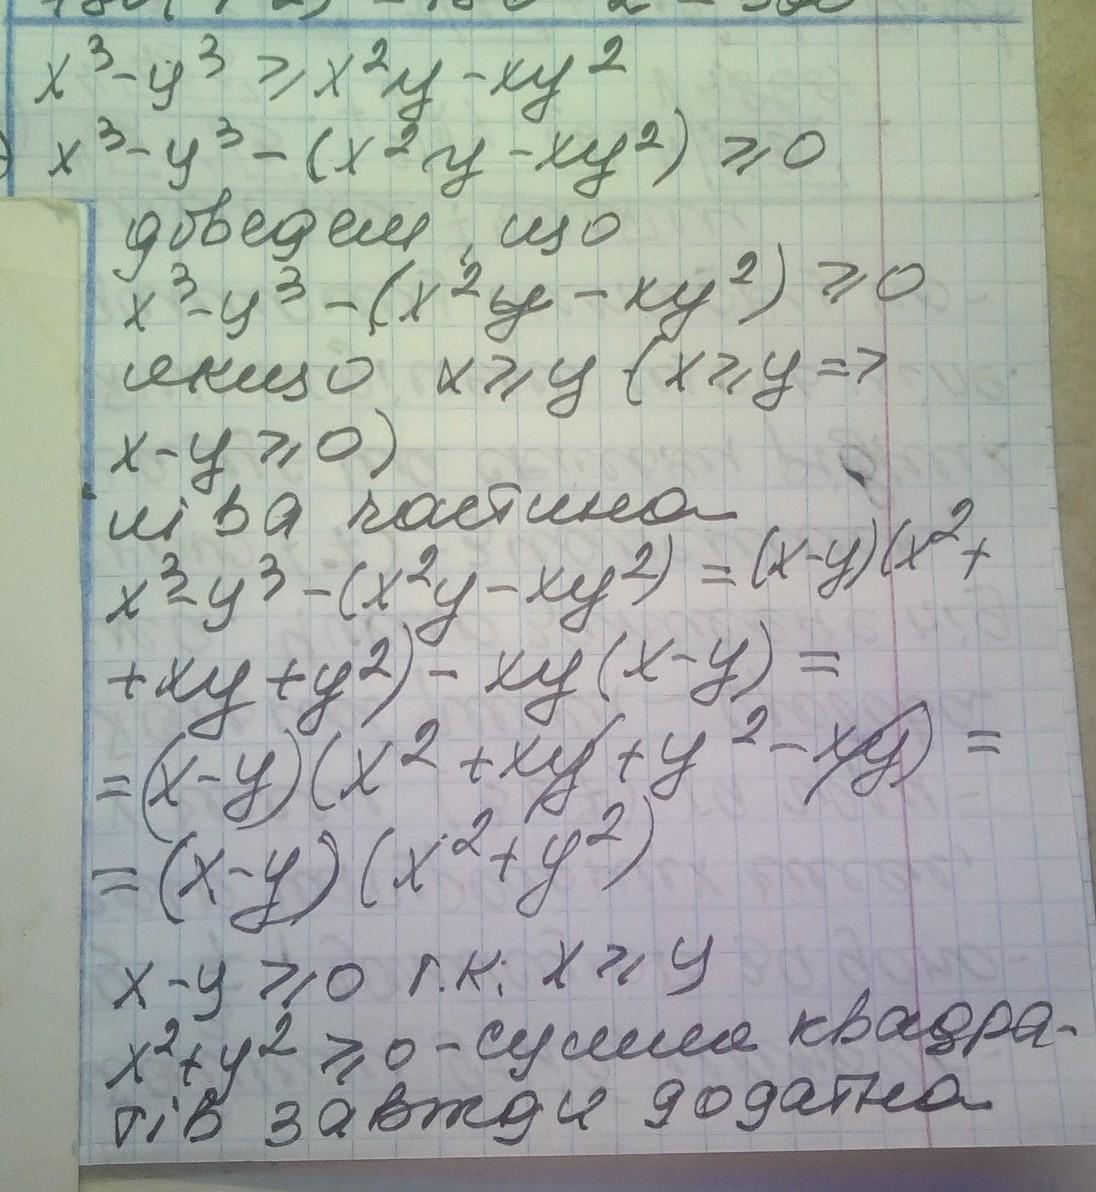 x³-y³ ⩾ x²y-xy²
x³-y³-(x²y-xy²) ⩾ 0
доведем, що
x³-y³-(x²y-xy²) ⩾ 0
якщо x⩾y (x⩾y =>
x-y ⩾ 0)
ліва частина
x³-y³-(x²y-xy²) = (x-y)(x²+
+xy+y²)-xy(x-y) =
=(x-y)(x²+xy+y²-xy) =
=(x-y)(x²+y²)
x-y ⩾ 0 т.к. x ⩾ y
x²+y² ⩾ 0 - сумма квадра-
тів завжди додатна